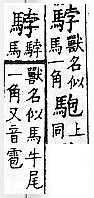 䮀獸名似馬一角上同
䮀䮀馬獸名似馬牛尾一角又音雹